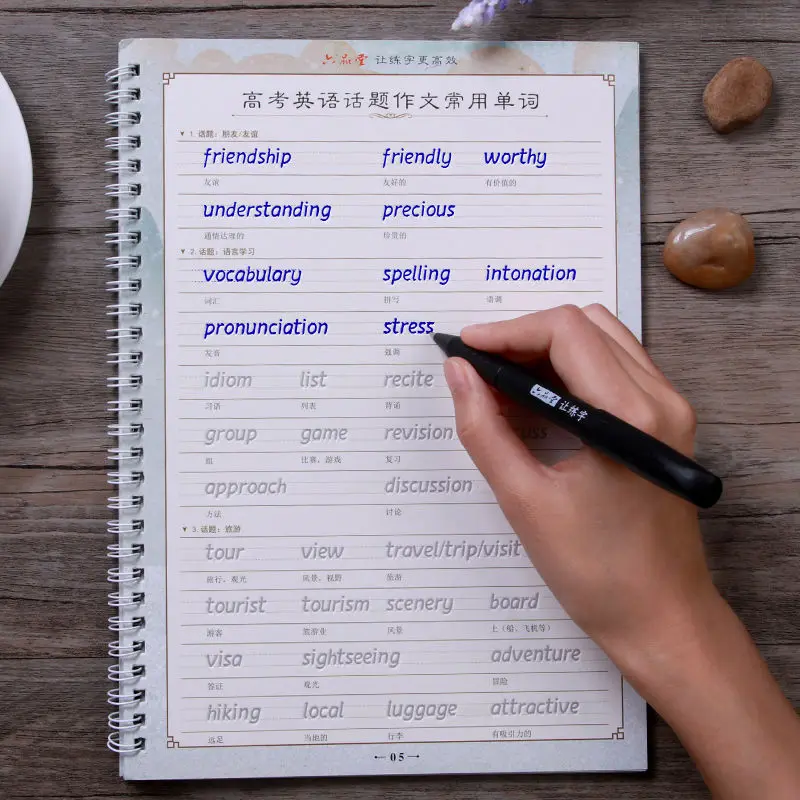 六品堂 让练字更高效
高考英语话题作文常用单词
▼ 1. 话题：朋友/友谊
friendship friendly worthy
友谊 友好的 有价值的
understanding precious
通情达理的 珍贵的
▼ 2. 话题：语言学习
vocabulary spelling intonation
词汇 拼写 语调
pronunciation stress
发音 强调
idiom list recite
习语 列表 背诵
group game revision
组 比赛，游戏 复习
approach discussion
方法 讨论
▼ 3. 话题：旅游
tour view travel/trip/visit
旅行，观光 风景，视野 旅游
tourist tourism scenery board
游客 旅游业 风景 上（船、飞机等）
visa sightseeing adventure
签证 观光 冒险
hiking local luggage attractive
远足 当地的 行李 有吸引力的
05
六品堂 让练字